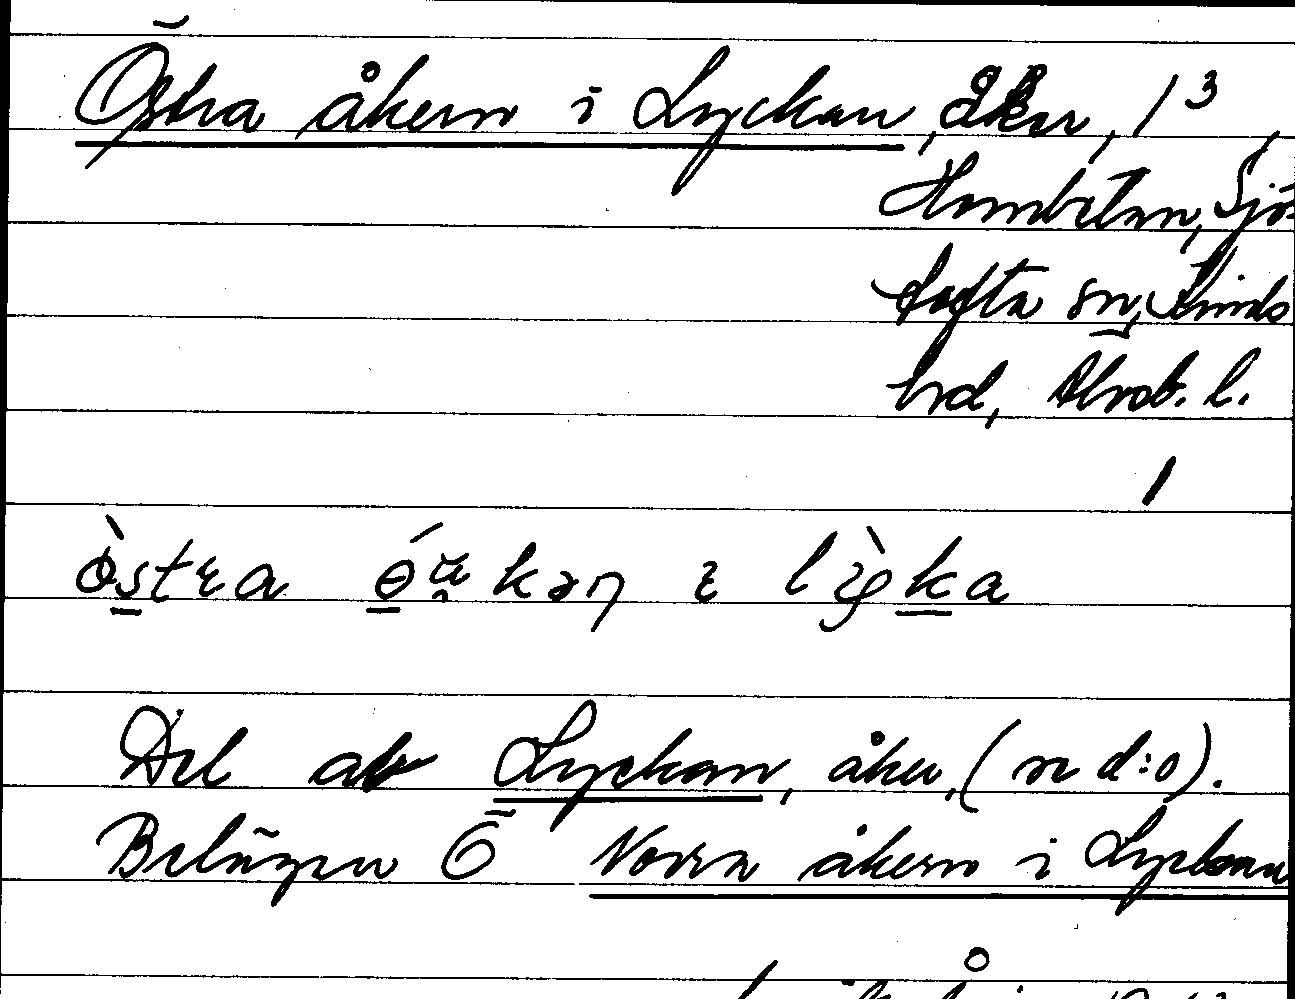 Östra åkern i Lyckan, åker, 1³,
Hambetan, Sjö-
tofta sn, Kinds
hd, Älvsb. l.
1
Del av Lyckan, åker, (se d:o).
Belägen Ö Norra åkern i Lyckan